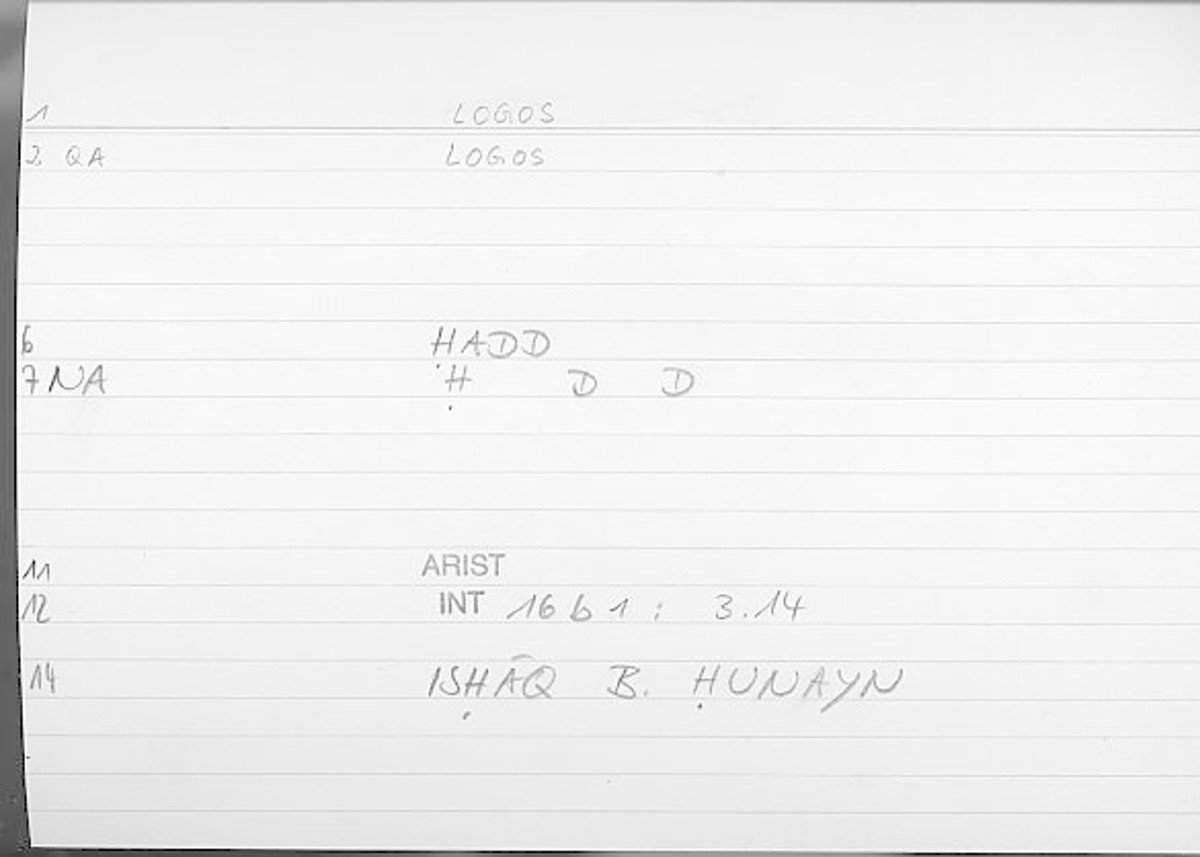 1 LOGOS
2 QA LOGOS
6 ḤADD
7 NA Ḥ D D
11 ARIST
12 INT 16 b 1 : 3.14
14 ISḤĀQ B. ḤUNAYN